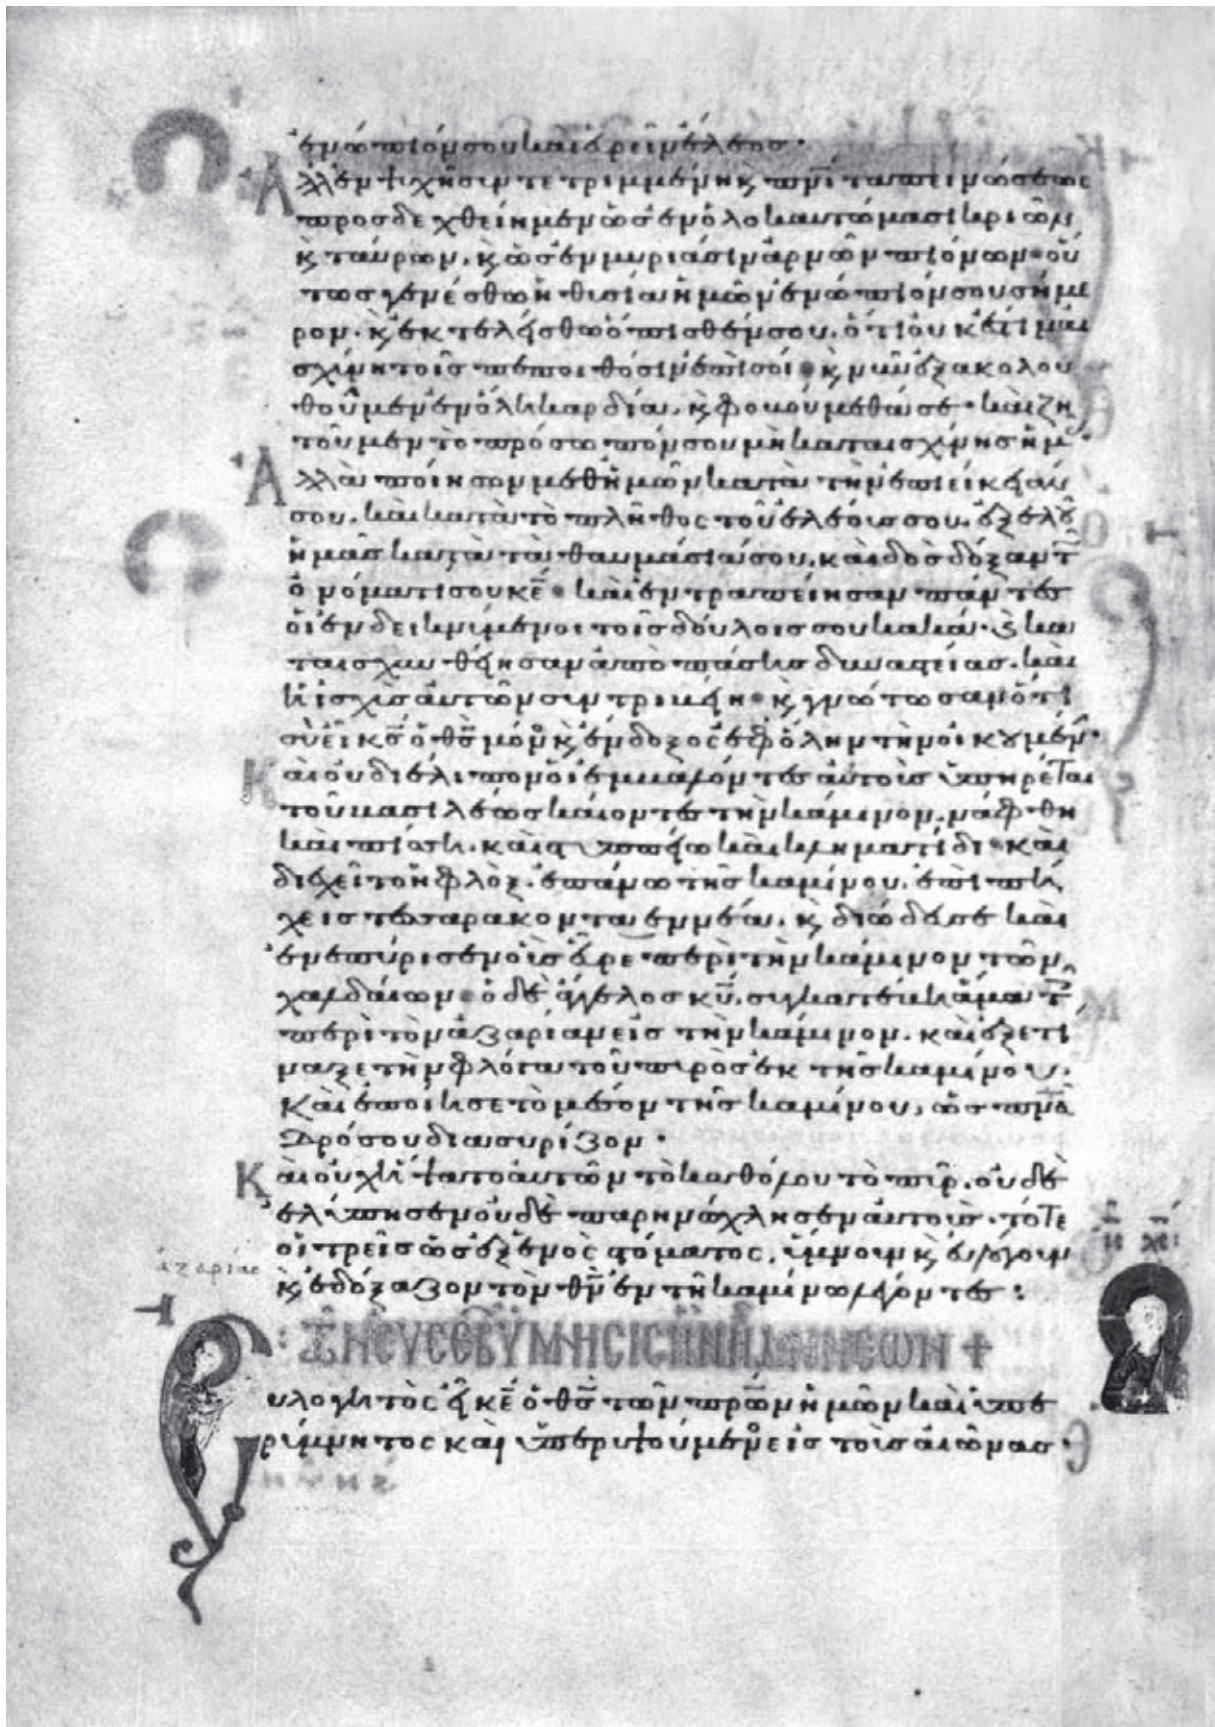 ἐνώπιόν σου καὶ εὑρεῖν ἔλεος·
Ἀλλ ἐν ψυχῆ συντετριμμένη κ πνι ταπεινώσεως
προσδεχθείημεν ὡς ἐν ὁλοκαυτώμασι κριῶν
κ ταύρων. κ ὡς ἐν μυριάσιν ἀρνῶν πιόνων· οὕ
τως γενέσθω ἡ θυσία ἡμῶν ἐνώπιόν σου σήμε
ρον. κ ἐκτελέσθω ὄπισθέν σου. ὅτι οὐκ ἔστιν αἰ
σχύνη τοῖς πεποιθόσιν ἐπὶ σοί· κ νῦν ἐξακολου
θοῦμεν ἐν ὅλη καρδία. κ φοβούμεθά σε· καὶ ζη
τοῦμεν τὸ πρόσωπόν σου μὴ καταισχύνης ἡμ·
Ἀλλὰ ποίησον μεθ ἡμῶν κατὰ τὴν ἐπιείκειάν
σου. καὶ κατὰ τὸ πλῆθος τοῦ ἐλέους σου. ἐξελοῦ
ἡμᾶς κατὰ τὰ θαυμάσιά σου. καὶ δὸς δόξαν τ
ὀνόματί σου κε· καὶ ἐντραπείησαν πάντες
οἱ ἐνδεικνύμενοι τοῖς δούλοις σου κακά· κ κα
ταισχυνθείησαν ἀπὸ πάσης δυναστείας. καὶ
ἡ ἰσχὺς αὐτῶν συντριβείη· κ γνώτωσαν ὅτι
σὺ εἶ κς ὁ θς μόν κ ἔνδοξος ἐφ ὅλην τὴν οἰκουμέν·
Καὶ οὐ διέλιπον οἱ ἐμβαλόντες αὐτοὺς ὑπηρέται
τοῦ βασιλέως καίοντες τὴν κάμινον. νάφθη
καὶ πίσση. καὶ στιππύω καὶ κληματίδι· καὶ
διεχεῖτο ἡ φλὸξ. ἐπάνω τῆς καμίνου. ἐπὶ πή
χεις τεσσαράκοντα ἐννέα. κ διώδευσε καὶ
ἐνεπύρισεν οὓς εὗρε περὶ τὴν κάμινον τῶν
χαλδαίων· ὁ δὲ ἄγγελος κυ. συγκατέβη ἅμα τ
περὶ τὸν ἀζαρίαν εἰς τὴν κάμινον. καὶ ἐξετί
ναξε τὴν φλόγα τοῦ πυρὸς ἐκ τῆς καμίνου.
Καὶ ἐποίησε τὸ μέσον τῆς καμίνου, ὡς πνα
δρόσου διασυρίζον·
Καὶ οὐχ ἥψατο αὐτῶν τὸ καθόλου τὸ πῦρ. οὐδὲ
ἐλύπησεν οὐδὲ παρηνώχλησεν αὐτούς· τότε
οἱ τρεῖς ὡς ἐξ ἑνὸς στόματος. ὕμνουν κ εὐλόγουν
κ ἐδόξαζον τὸν θν ἐν τῆ καμίνω λέγοντες:
Εὐλογητὸς εἶ κε ὁ θς τῶν πρων ἡμῶν καὶ ὑπε
ρύμνητος καὶ ὑπερυψούμενος εἰς τοὺς αἰῶνας·